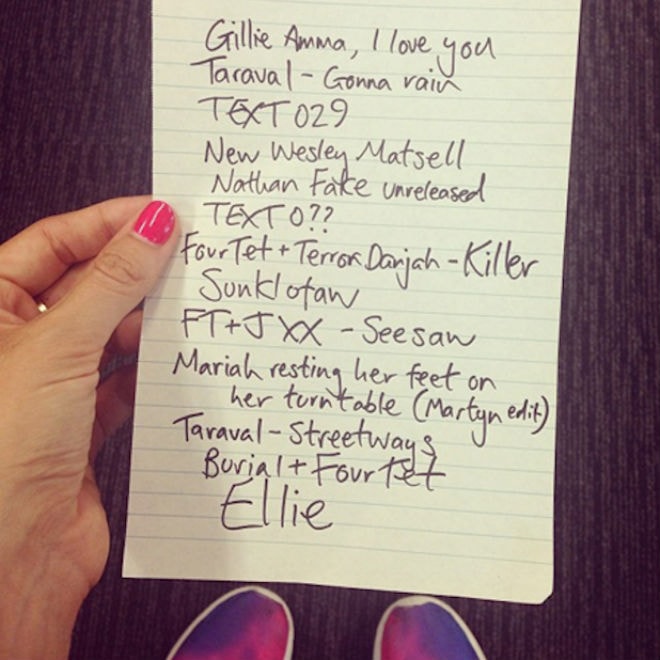 Gillie Amma, I love you
Taraval - Gonna rain
TEXT 029
New Wesley Matsell
Nathan Fake unreleased
TEXT 0??
Four Tet + Terror Danjah - Killer
Sunklofaw
FT+J XX - Seesaw
Mariah resting her feet on
her turntable (Martyn edit)
Taraval - Streetways
Burial + Four Tet
Ellie